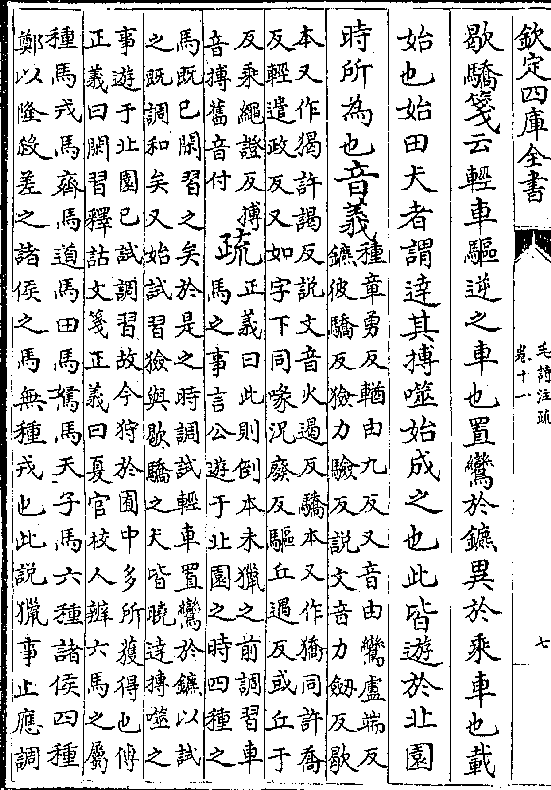 欽定四庫全書
毛詩注疏
卷十一
七
歇驕箋云輕車驅逆之車也置鸞於鑣異於乘車也載
始也始田犬者謂達其搏噬始成之也此皆遊於北園
時所為也音義
種章勇反輶由九反又音由鸞盧端反
鑣彼驕反獫力驗反說文音力劒反歇
本又作猲許謁反說文音火遏反驕本又作獢同許喬
反輕遣政反又如字下同喙况廢反驅丘遇反或丘于
反乘繩證反搏
音搏舊音付
疏
正義曰此則倒本未獵之前調習車
馬之事言公遊于北園之時四種之
馬既已閑習之矣於是之時調試輕車置鸞於鑣以試
之既調和矣又始試習獫與歇驕之犬皆曉達搏噬之
事遊于北園已試調習故今狩於囿中多所獲得也傅
正義曰閑習釋詁文箋正義曰夏官校人辨六馬之屬
種馬戎馬齊馬道馬田馬駑馬天子馬六種諸侯四種
鄭以隆殺差之諸侯之馬無種戎也此說獵事止應調